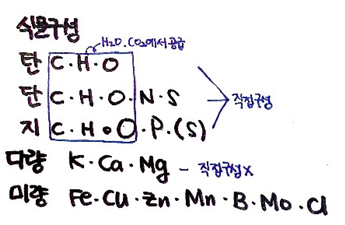 식물구성
H2O.CO2에서 공급
탄 C·H·O
단 C·H·O·N·S
직접구성
지 C·H·O·P·(S)
다량 K·Ca·Mg - 직접구성X
미량 Fe·Cu·Zn·Mn·B·Mo·Cl